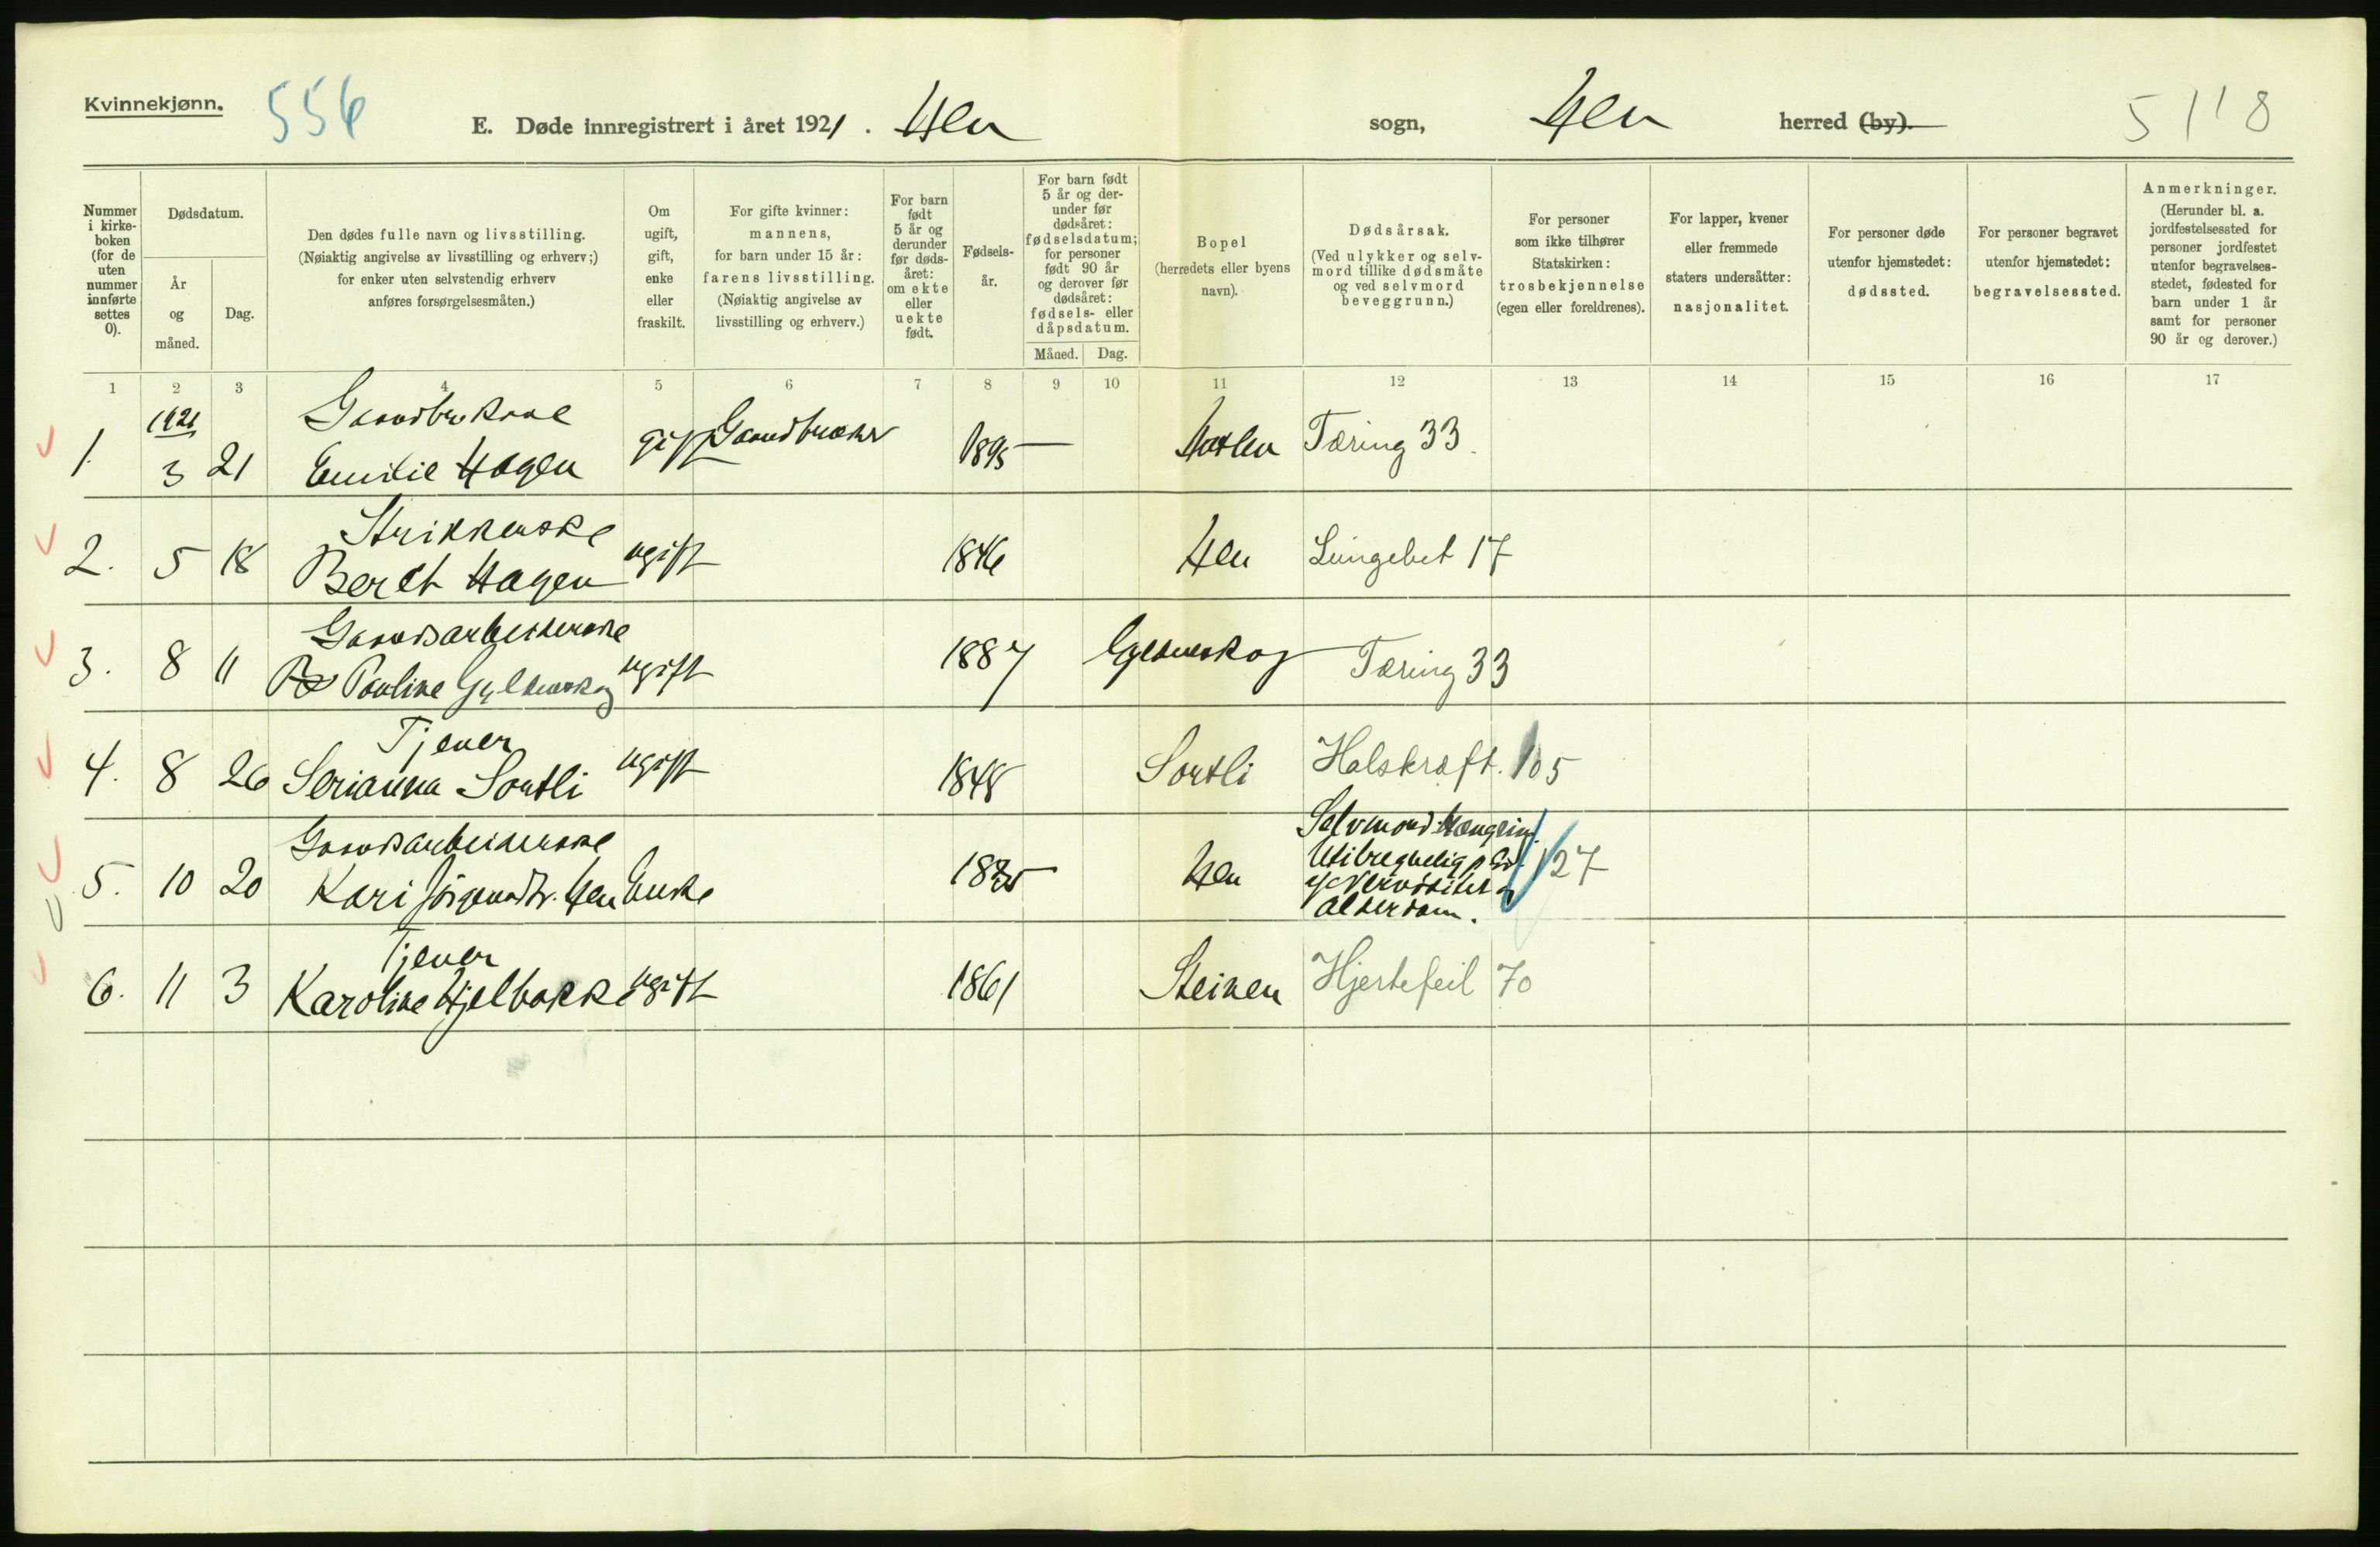 Kvinnekjønn.
556
E. Døde innregistrert i året 1921. Hen sogn, Hen herred (by).
5118
Nummer i kirkeboken (for de uten nummer innførte settes 0).
Dødsdatum.
År og måned.
Dag.
Den dødes fulle navn og livsstilling.
(Nøiaktig angivelse av livsstilling og erhverv;)
for enker uten selvstendig erhverv
anføres forsørgelsesmåten.)
Om ugift, gift, enke eller fraskilt.
For gifte kvinner:
mannens,
for barn under 15 år:
farens livsstilling.
(Nøiaktig angivelse av
livsstilling og erhverv.)
For barn født 5 år og derunder før dødsåret: om ekte eller uekte født.
Fødselsår.
For barn født 5 år og derunder før dødsåret: fødselsdatum; for personer født 90 år og derover før dødsåret: fødsels- eller dåpsdatum.
Måned. Dag.
Bopel
(herredets eller byens
navn).
Dødsårsak.
(Ved ulykker og selvmord tillike dødsmåte og ved selvmord beveggrunn.)
For personer
som ikke tilhører
Statskirken:
trosbekjennelse
(egen eller foreldrenes).
For lapper, kvener
eller fremmede
staters undersåtter:
nasjonalitet.
For personer døde
utenfor hjemstedet:
dødssted.
For personer begravet
utenfor hjemstedet:
begravelsessted.
Anmerkninger.
(Herunder bl. a. jordfestelsessted for personer jordfestet utenfor begravelsesstedet, fødested for barn under 1 år samt for personer 90 år og derover.)
1 2 3 4 5 6 7 8 9 10 11 12 13 14 15 16 17
1921
1. 3 21 Emilie Hagen gift Gaardbruker 1895 Tæring 33
Strikkerske
2. 5 18 Beret Hagen ugift 1846 Hen Lungebet 17
Gaardsarbeiderske
3. 8 11 Pauline Gyldenskog ugift 1887 Gyldenskog Tæring 33
Tjener
4. 8 26 Serianna Sortli ugift 1848 Sortli Halskræft. 105
Gaardsarbeiderske
5. 10 20 Kari Jørgensdtr. Hen Enke Hen Selvmord Hængning Utilregnelig Nervøsitet Alderdom. 127
Tjener
6. 11 3 Karoline Hjelbakk ugift 1861 Steinen Hjertefeil 70